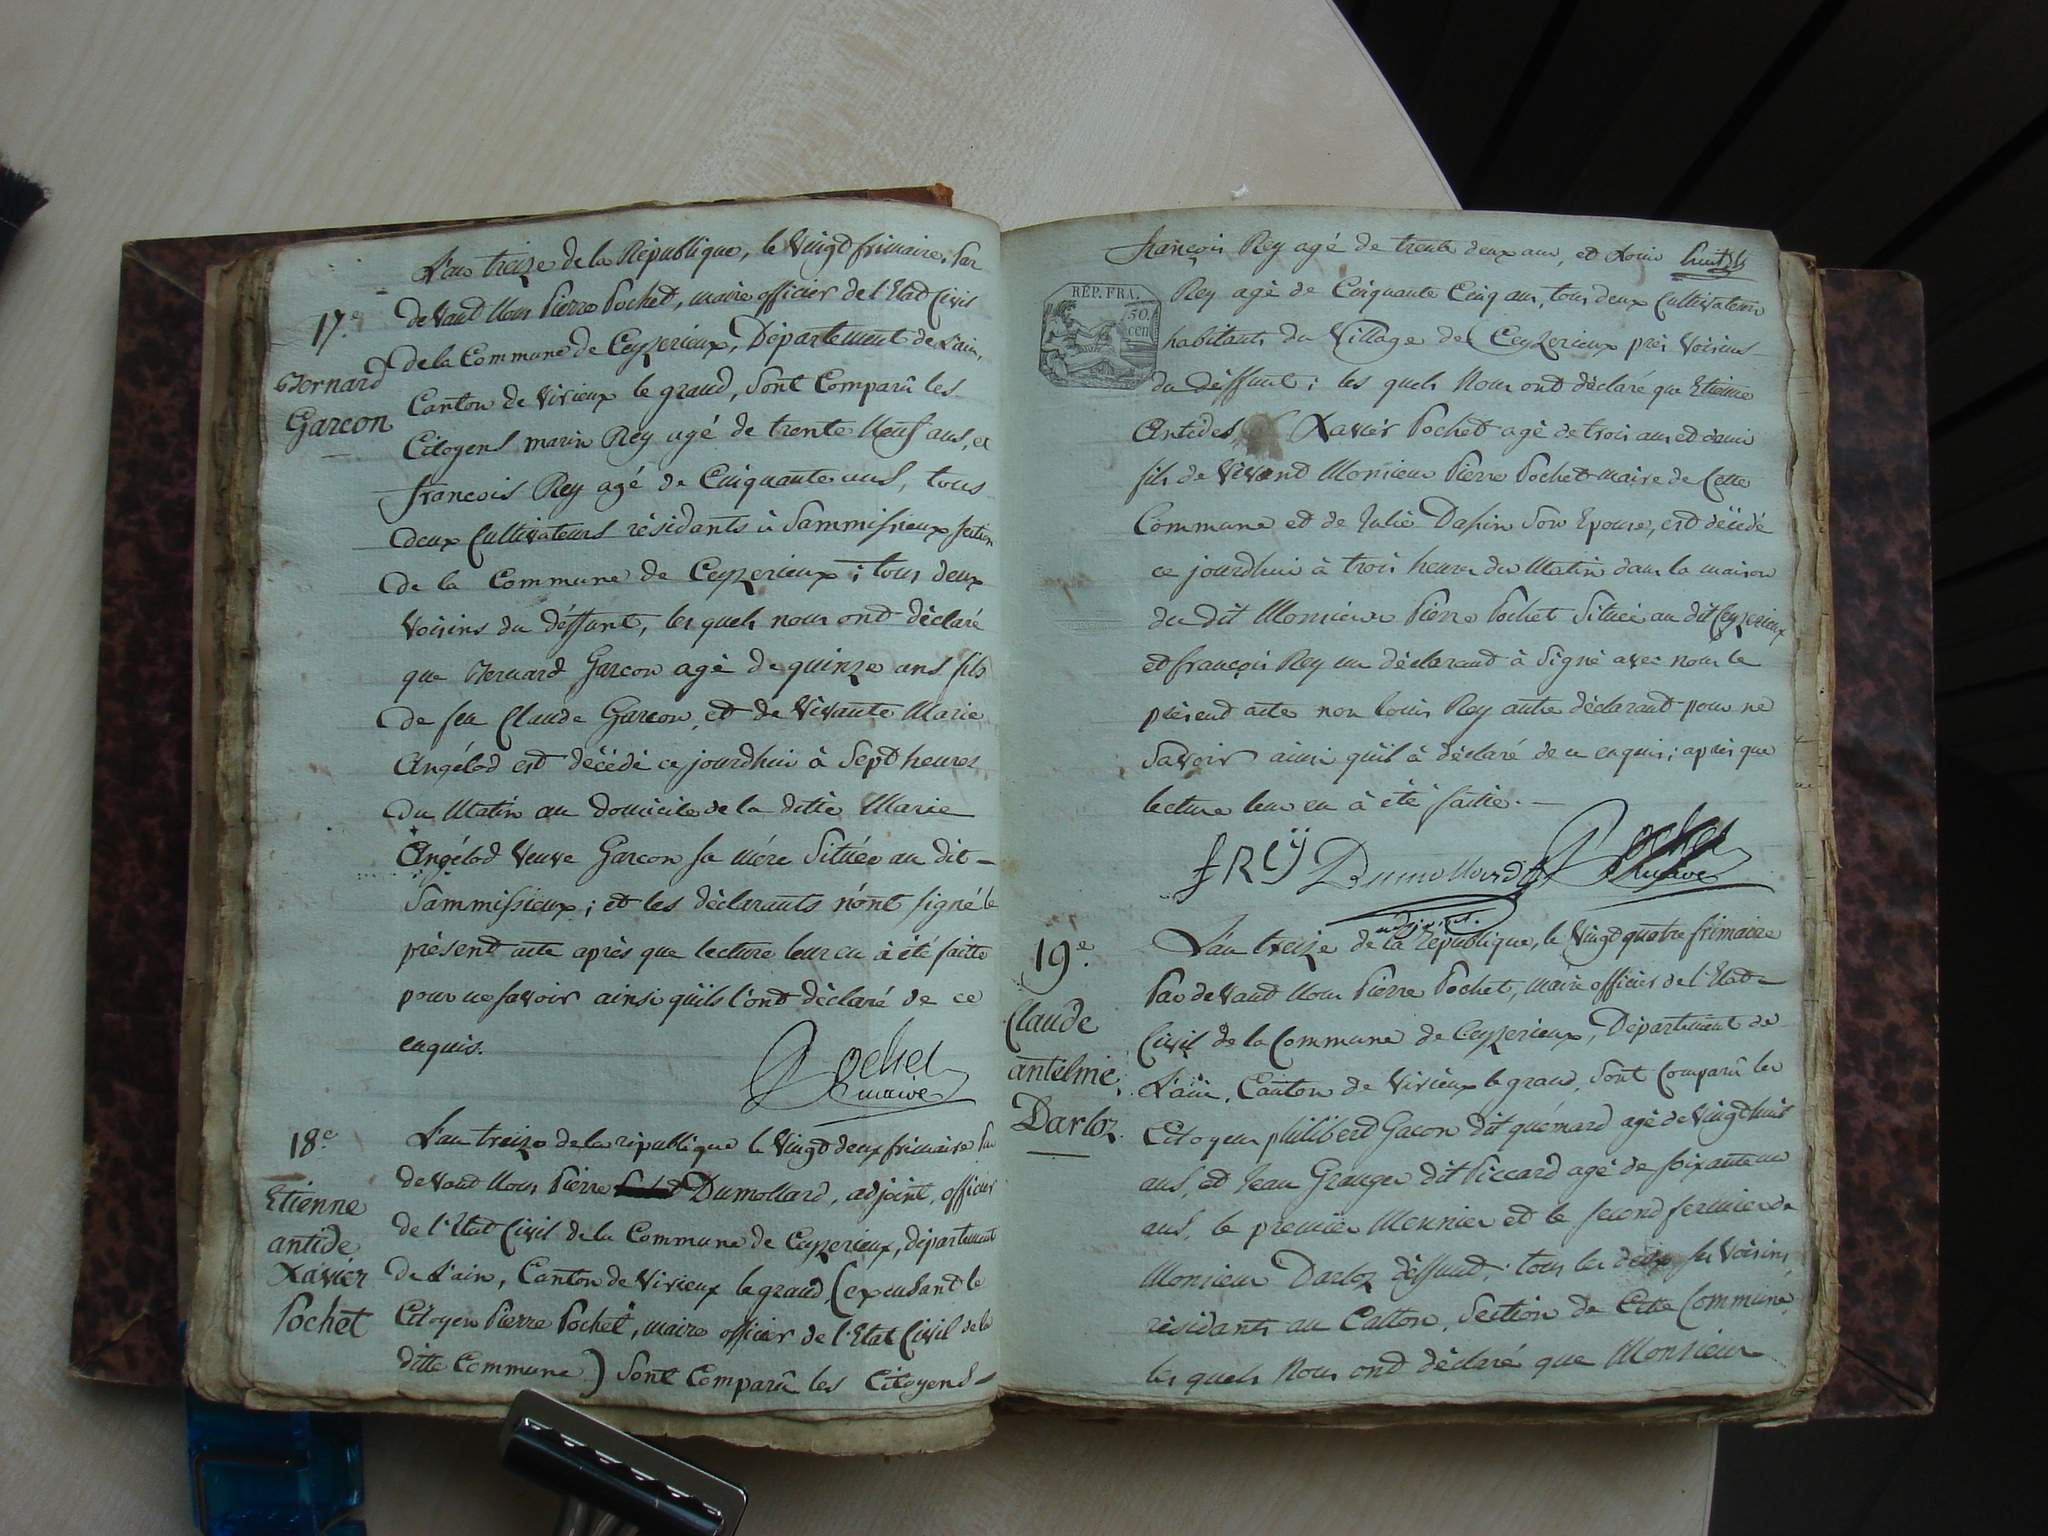 L'an treize de la République, le Vingt frimaire, Par
17.e
devant Nous Pierre Pochet, maire officier de l'Etat Civil
de la Commune de Ceyzerieux, Département de L'ain,
Bernard
Garcon
Canton de Virieux le grand, Sont Comparû les
Citoyens marin Rey agé de trente Neuf ans, et
francois Rey agé de Cinquante ans, tous
deux Cultivateurs résidants à Sammissieux section
de la Commune de Ceyzerieux ; tous deux
Voisins du déffunt, les quels nous ont déclaré
que Bernard Garcon agé de quinze ans fils
de feu Claude Garcon, et de Vivante Marie
Angélod est décédé ce jourdhui à Sept heures
du Matin au domicile de la ditte Marie
Angélod Veuve Garcon sa mére Située au dit
Sammissieux ; et les déclarants n'ont signé le
présent acte après que lecture leur en à été faitte
pour ne savoir ainsi quils l'ont déclaré de ce
enquis.
Pochet
maire
18.e
L'an treize de la république le Vingt deux frimaire Par
devant Nous Pierre Dumollard, adjoint, officier
Etienne
antide
Xavier
Pochet
de l'Etat Civil de la Commune de Ceyzerieux, département
de L'ain, Canton de Virieux le grand, (excusant le
Citoyen Pierre Pochet, maire officier de l'Etat Civil de la
ditte Commune) Sont Comparû les Citoyens
françois Rey agé de trente deux ans, et Louis
RÉP. FRA.
50.
cen
Rey agé de Cinquante Cinq ans, tous deux Cultivateurs
habitants du Village de Ceyzerieux près Voisins
du déffunt ; les quels Nous ont déclaré que Etienne
Antides Xavier Pochet agé de trois ans et demi
fils de Vivant Monsieur Pierre Pochet maire de Cette
Commune et de Julie Dapin Son Epouse, est décédé
ce jourdhui à trois heures du Matin dans la maison
du dit Monsieur Pierre Pochet Située au dit Ceyzerieux
et françois Rey un déclarant à Signé avec nous le
présent acte non Louis Rey autre déclarant pour ne
Savoir ainsi quil à déclaré de ce enquis ; après que
lecture leur en à été faitte.
f REÿ Dumollard Pochet
maire
adjoint.
19.e
L'an treize de la République, le Vingt quatre frimaire
Par devant Nous Pierre Pochet, maire officier de l'Etat
Claude
antelme
Darloz
Civil de la Commune de Ceyzerieux, Département de
L'ain, Canton de Virieux le grand, Sont Comparû les
Citoyens philibert Gacon dit quémard agé de Vingt huit
ans, et Jean Granger dit Piccard agé de soixante un
ans, le premier Meunier et le second fermier de
Monsieur Darloz déffunt ; tous les deux ses Voisins
résidants au Catton, Section de Cette Commune,
les quels Nous ont déclaré que Monsieur